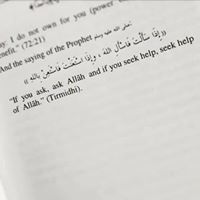 ay: I do not own for you (power
enefit." (72:21)
And the saying of the Prophet صلى الله عليه وسلم
« إِذَا سَأَلْتَ فَاسْأَلِ اللهَ ، وَإِذَا اسْتَعَنْتَ فَاسْتَعِنْ بِاللهِ »
"If you ask, ask Allâh and if you seek help, seek help
of Allâh." (Tirmidhi).